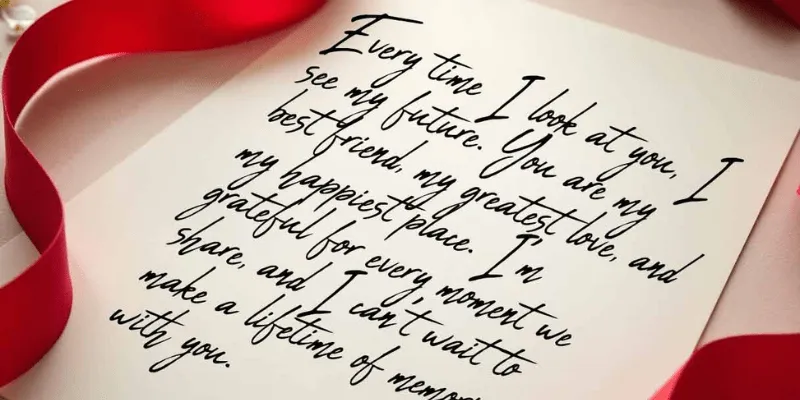 Every time I look at you, I
see my future. You are my
best friend, my greatest love, and
my happiest place. I'm
grateful for every moment we
share, and I can't wait to
make a lifetime of
with you.